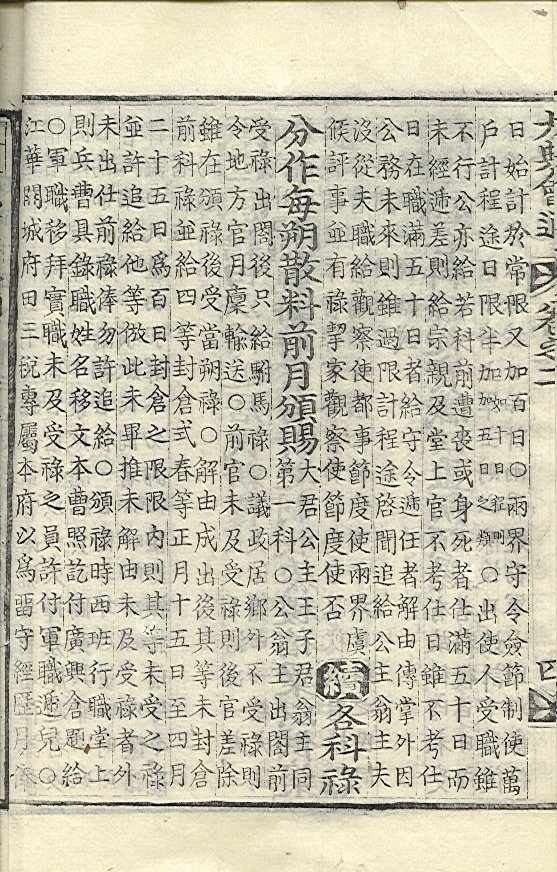 大典會通 卷之二 四
日始計於常限又加百日○兩界守令僉節制使萬
戶計程途日限半加如十日程則加五日之類○出使人受職雖
不行公亦給若科前遭喪或身死者仕滿五十日而
未經遞差則給宗親及堂上官不考仕日雖不考仕
日在職滿五十日者給守令遞任者解由傳掌外因
公務未來則雖過限計程途啓聞追給公主翁主夫
沒從夫職給觀察使都事節度使兩界虞
候評事並有祿挈家觀察使節度使否
續各科祿
分作每朔散料前月頒賜
大君公主王子君翁主同
第一科○公翁主出閤前
受祿出閤後只給駙馬祿○議政居鄕外不受祿則
令地方官月廩輸送○前官未及受祿則後官差除
雖在頒祿後受當朔祿○解由成出後其等未封倉
前科祿並給四等封倉式春等正月十五日至四月
二十五日爲百日封倉之限限內則其等未受之祿
並許追給他等倣此未畢推未解由未及受祿者外
未出仕前祿俸勿許追給○頒祿時西班行職堂上
則兵曹具錄職姓名移文本曹照訖付廣興倉題給
○軍職移拜實職未及受祿之員許付軍職遞兒○
江華開城府田三稅專屬本府以爲留守經歷月俸